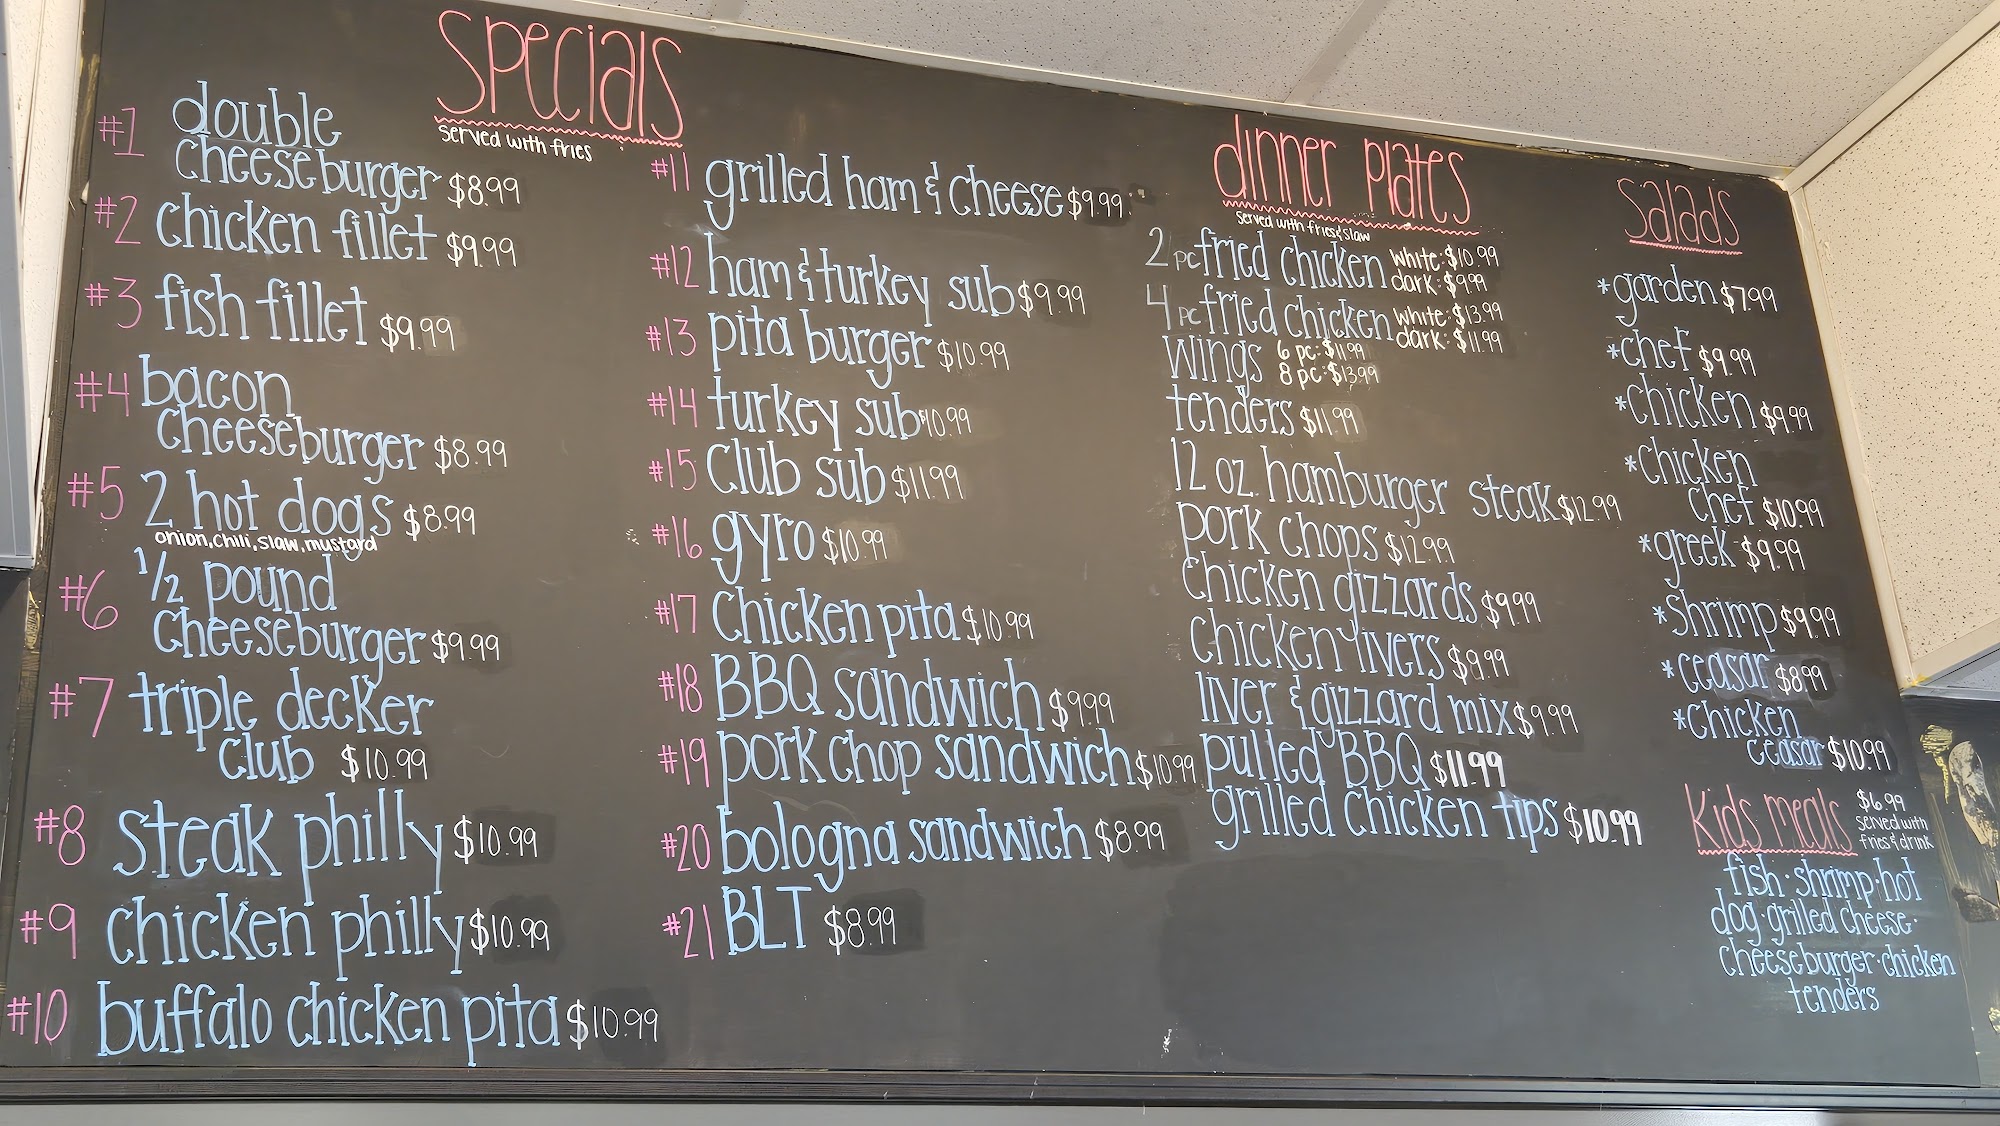 specials
served with fries
#1 double
cheeseburger $8.99
#2 chicken fillet $9.99
#3 fish fillet $9.99
#4 bacon
cheeseburger $8.99
#5 2 hot dogs $8.99
onion, chili, slaw, mustard
#6 1/2 pound
cheeseburger $9.99
#7 triple decker
club $10.99
#8 steak philly $10.99
#9 chicken philly $10.99
#10 buffalo chicken pita $10.99
#11 grilled ham & cheese $9.99
#12 ham & turkey sub $9.99
#13 pita burger $10.99
#14 turkey sub $10.99
#15 club sub $11.99
#16 gyro $10.99
#17 chicken pita $10.99
#18 BBQ sandwich $9.99
#19 pork chop sandwich $10.99
#20 bologna sandwich $8.99
#21 BLT $8.99
dinner plates
served with fries & slaw
2 pc fried chicken white: $10.99
dark: $9.99
4 pc fried chicken white: $13.99
dark: $11.99
wings 6 pc: $11.99
8 pc: $13.99
tenders $11.99
12 oz. hamburger steak $12.99
pork chops $12.99
chicken gizzards $9.99
chicken livers $9.99
liver & gizzard mix $9.99
pulled BBQ $11.99
grilled chicken tips $10.99
salads
*garden $7.99
*chef $9.99
*chicken $9.99
*chicken
chef $10.99
*greek $9.99
*shrimp $9.99
*ceasar $8.99
*chicken
ceasar $10.99
kids meals $6.99
served with
fries & drink
fish · shrimp · hot
dog · grilled cheese ·
cheeseburger · chicken
tenders